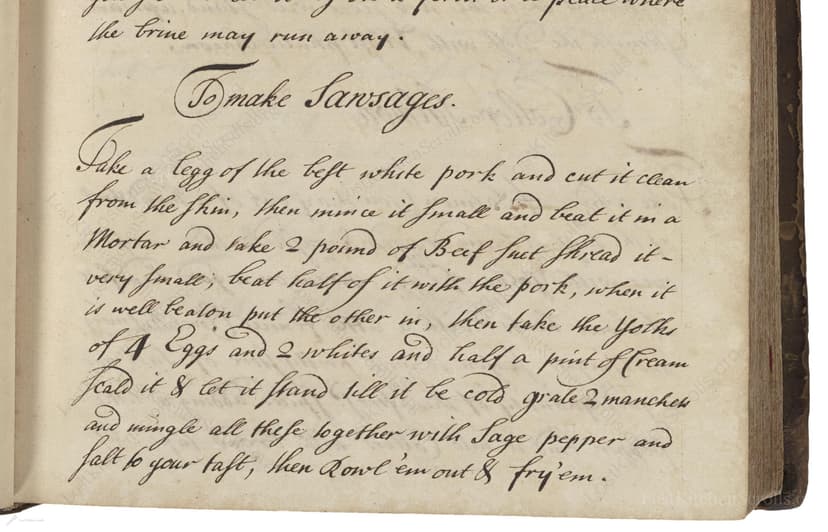 the brine may run away.
To make Sawsages.
Take a legg of the best white pork and cut it clean
from the skin, then mince it small and beat it in a
Mortar and take 2 pound of Beef suet shread it -
very small; beat half of it with the pork, when it
is well beaton put the other in, then take the Yolks
of 4 Eggs and 2 whites and half a pint of Cream
scald it & let it stand till it be cold grate 2 manchets
and mingle all these together with Sage pepper and
salt to your tast, then Rowl 'em out & fry 'em.